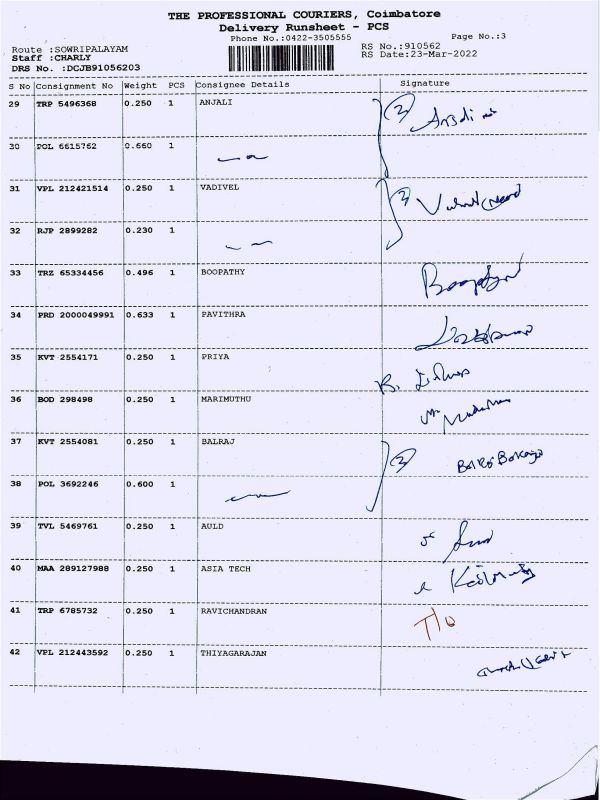 THE PROFESSIONAL COURIERS, Coimbatore
Delivery Runsheet - PCS
Phone No.:0422-3505555 Page No.:3
Route :SOWRIPALAYAM RS No.:910562
Staff :CHARLY RS Date:23-Mar-2022
DRS No. :DCJB91056203
S No Consignment No Weight PCS Consignee Details Signature
29 TRP 5496368 0.250 1 ANJALI
30 POL 6615762 0.660 1
31 VPL 212421514 0.250 1 VADIVEL
32 RJP 2899282 0.230 1
33 TRZ 65334456 0.496 1 BOOPATHY
34 PRD 2000049991 0.633 1 PAVITHRA
35 KVT 2554171 0.250 1 PRIYA
36 BOD 298498 0.250 1 MARIMUTHU
37 KVT 2554081 0.250 1 BALRAJ
38 POL 3692246 0.600 1
39 TVL 5469761 0.250 1 AULD
40 MAA 289127988 0.250 1 ASIA TECH
41 TRP 6785732 0.250 1 RAVICHANDRAN
42 VPL 212443592 0.250 1 THIYAGARAJAN